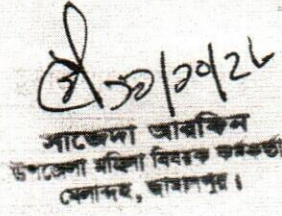 সাজেদা আরফিন
উপজেলা মহিলা বিষয়ক কর্মকর্তা
মেলান্দহ, জামালপুর।